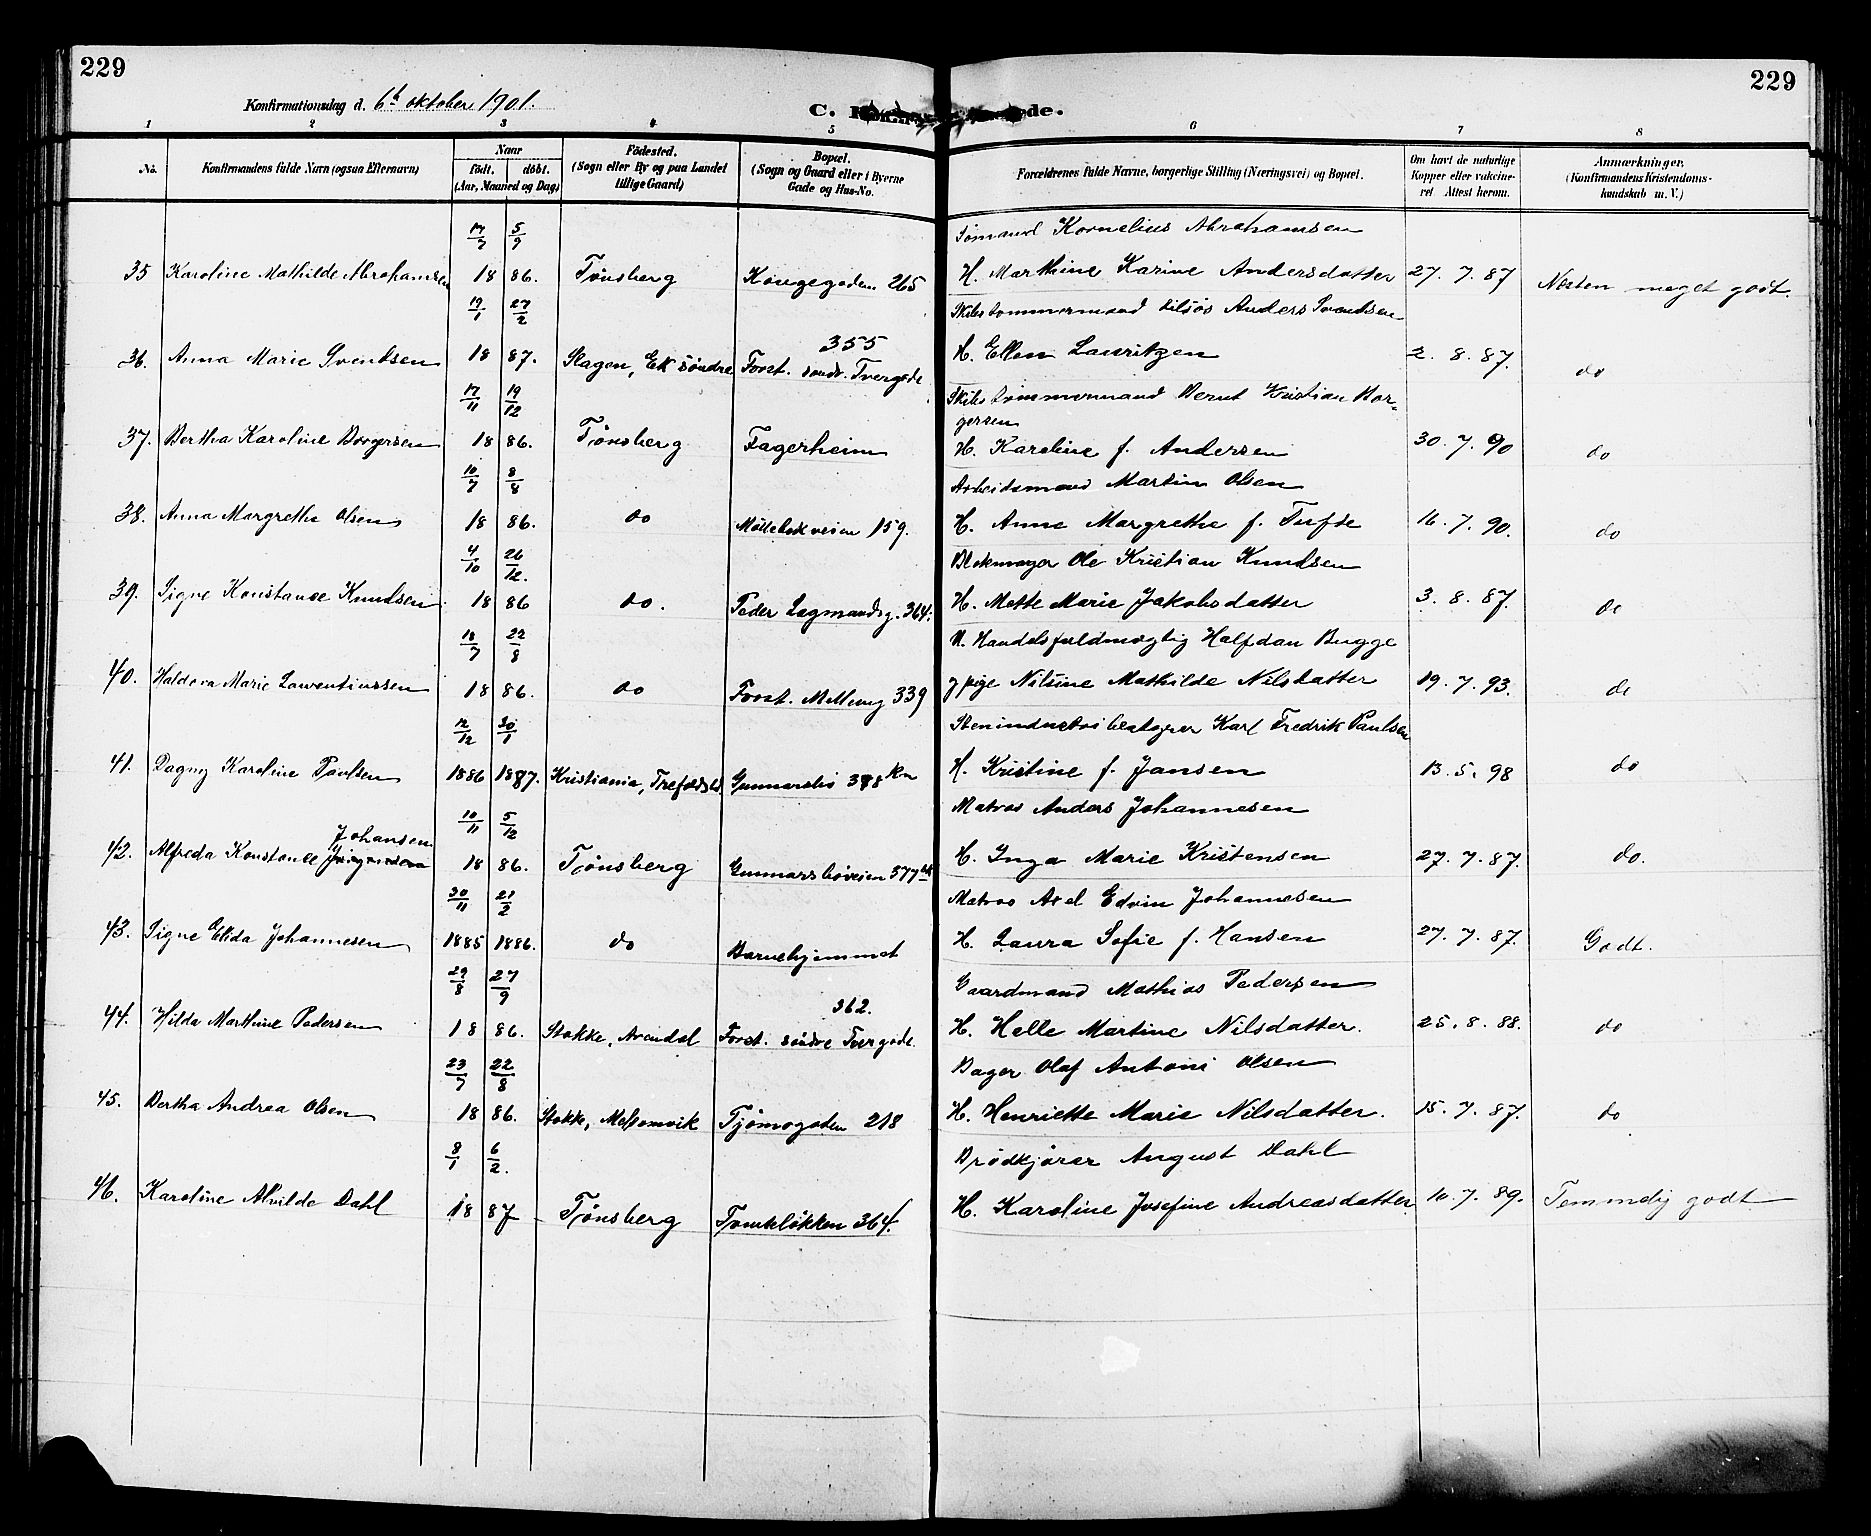 229
229
Konfirmationsdag d. 6te oktober 1901.
C. de.
1 2 3 4 5 6 7 8
No.
Konfirmandens fulde Navn (ogsaa Efternavn)
Naar
födt. döbt.
(Aar, Maaned og Dag)
Födested.
(Sogn eller By og paa Landet
tillige Gaard)
Bopæl.
(Sogn og Gaard eller i Byerne
Gade og Hus-No.
Forældrenes fulde Navne, borgerlige Stilling (Næringsvei) og Bopæl.
Om havt de naturlige
Kopper eller vakcine-
ret Attest herom.
Anmærkninger.
(Konfirmandens Kristendoms-
kundskab m. V.)
17/7 5/9 Sömand Kornelius Abrahamsen
35 Karoline Mathilde Abrahamsen 18 86. Tönsberg Kongegaden 265 H. Marthine Karine Andersdatter 27. 7. 87 Næsten meget godt.
19/1 27/2 Skibstömmermand tilsjös Anders Svendsen
355
36. Anna Marie Svendsen 18 87. Slagen, Ek söndre Forst. söndr. Tvergade H. Ellen Lauritzen 2. 8. 87. do
17/11 19/12 Skibstömmermand Bernt Kristian Bor-
gersen
37. Bertha Karoline Borgersen 18 86. Tönsberg Fagerheim H. Karoline f. Andersen 30. 7. 90 do
10/7 8/8 Arbeidsmand Martin Olsen
38. Anna Margrethe Olsen 18 86. do Möllebakveien 159. H. Anne Margrethe f. Tufte 16. 7. 90. do
4/10 26/12. Blokmager Ole Kristian Knudsen
39. Signe Konstanse Knudsen 18 86 do. Peder Lagmandsg. 364. H. Mette Marie Jakobsdatter 3. 8. 87. do
18/7 22/8 U. Handelsfuldmægtig Halfdan Bugge
40. Marie Laurentiussen 18 86. do Forst. Mellemg 339 g pige Nilsine Mathilde Nilsdatter 19. 7. 93. do
12/12 30/1 Stenindustribestyrer Karl Fredrik Paulsen
41. Dagny Karoline Paulsen 1886 1887. Kristiania, Trefoldigh. Gunnarsbö 378 H. Kristine f. Jansen 13. 5. 98 do
10/11 5/12 Matros Anders Johannesen
Johansen
42. Alfreda Konstanse 18 86. Tönsberg Gunnarsböveien 377 H. Inga Marie Kristensen 27. 7. 87. do.
30/11 21/2 Matros Axel Edvin Johannesen
43. Signe Elida Johannesen 1885 1886. do Barnehjemmet H. Laura Sofie f. Hansen 27. 7. 87. Godt.
29/8 27/9 Gaardmand Mathias Pedersen
362.
44. Hilda Marthine Pedersen 18 86. Stokke, Arendal Forst. söndre Tvergade. H. Helle Martine Nilsdatter. 25. 8. 88. do
23/7 22/8 Bager Olaf Antoni Olsen
45. Bertha Andrea Olsen 18 86. Stokke, Melsomvik Tjömegaden 218 H. Henriette Marie Nilsdatter. 15. 7. 87. do
8/1 6/2. Brödkjörer August Dahl
46. Karoline Alvilde Dahl 18 87 Tönsberg Tomtelökken 364. H. Karoline Josefine Andreasdatter 10. 7. 89. Temmelig godt